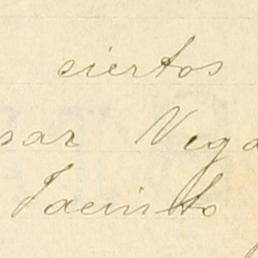 ciertos
sar Vega
Jacinto